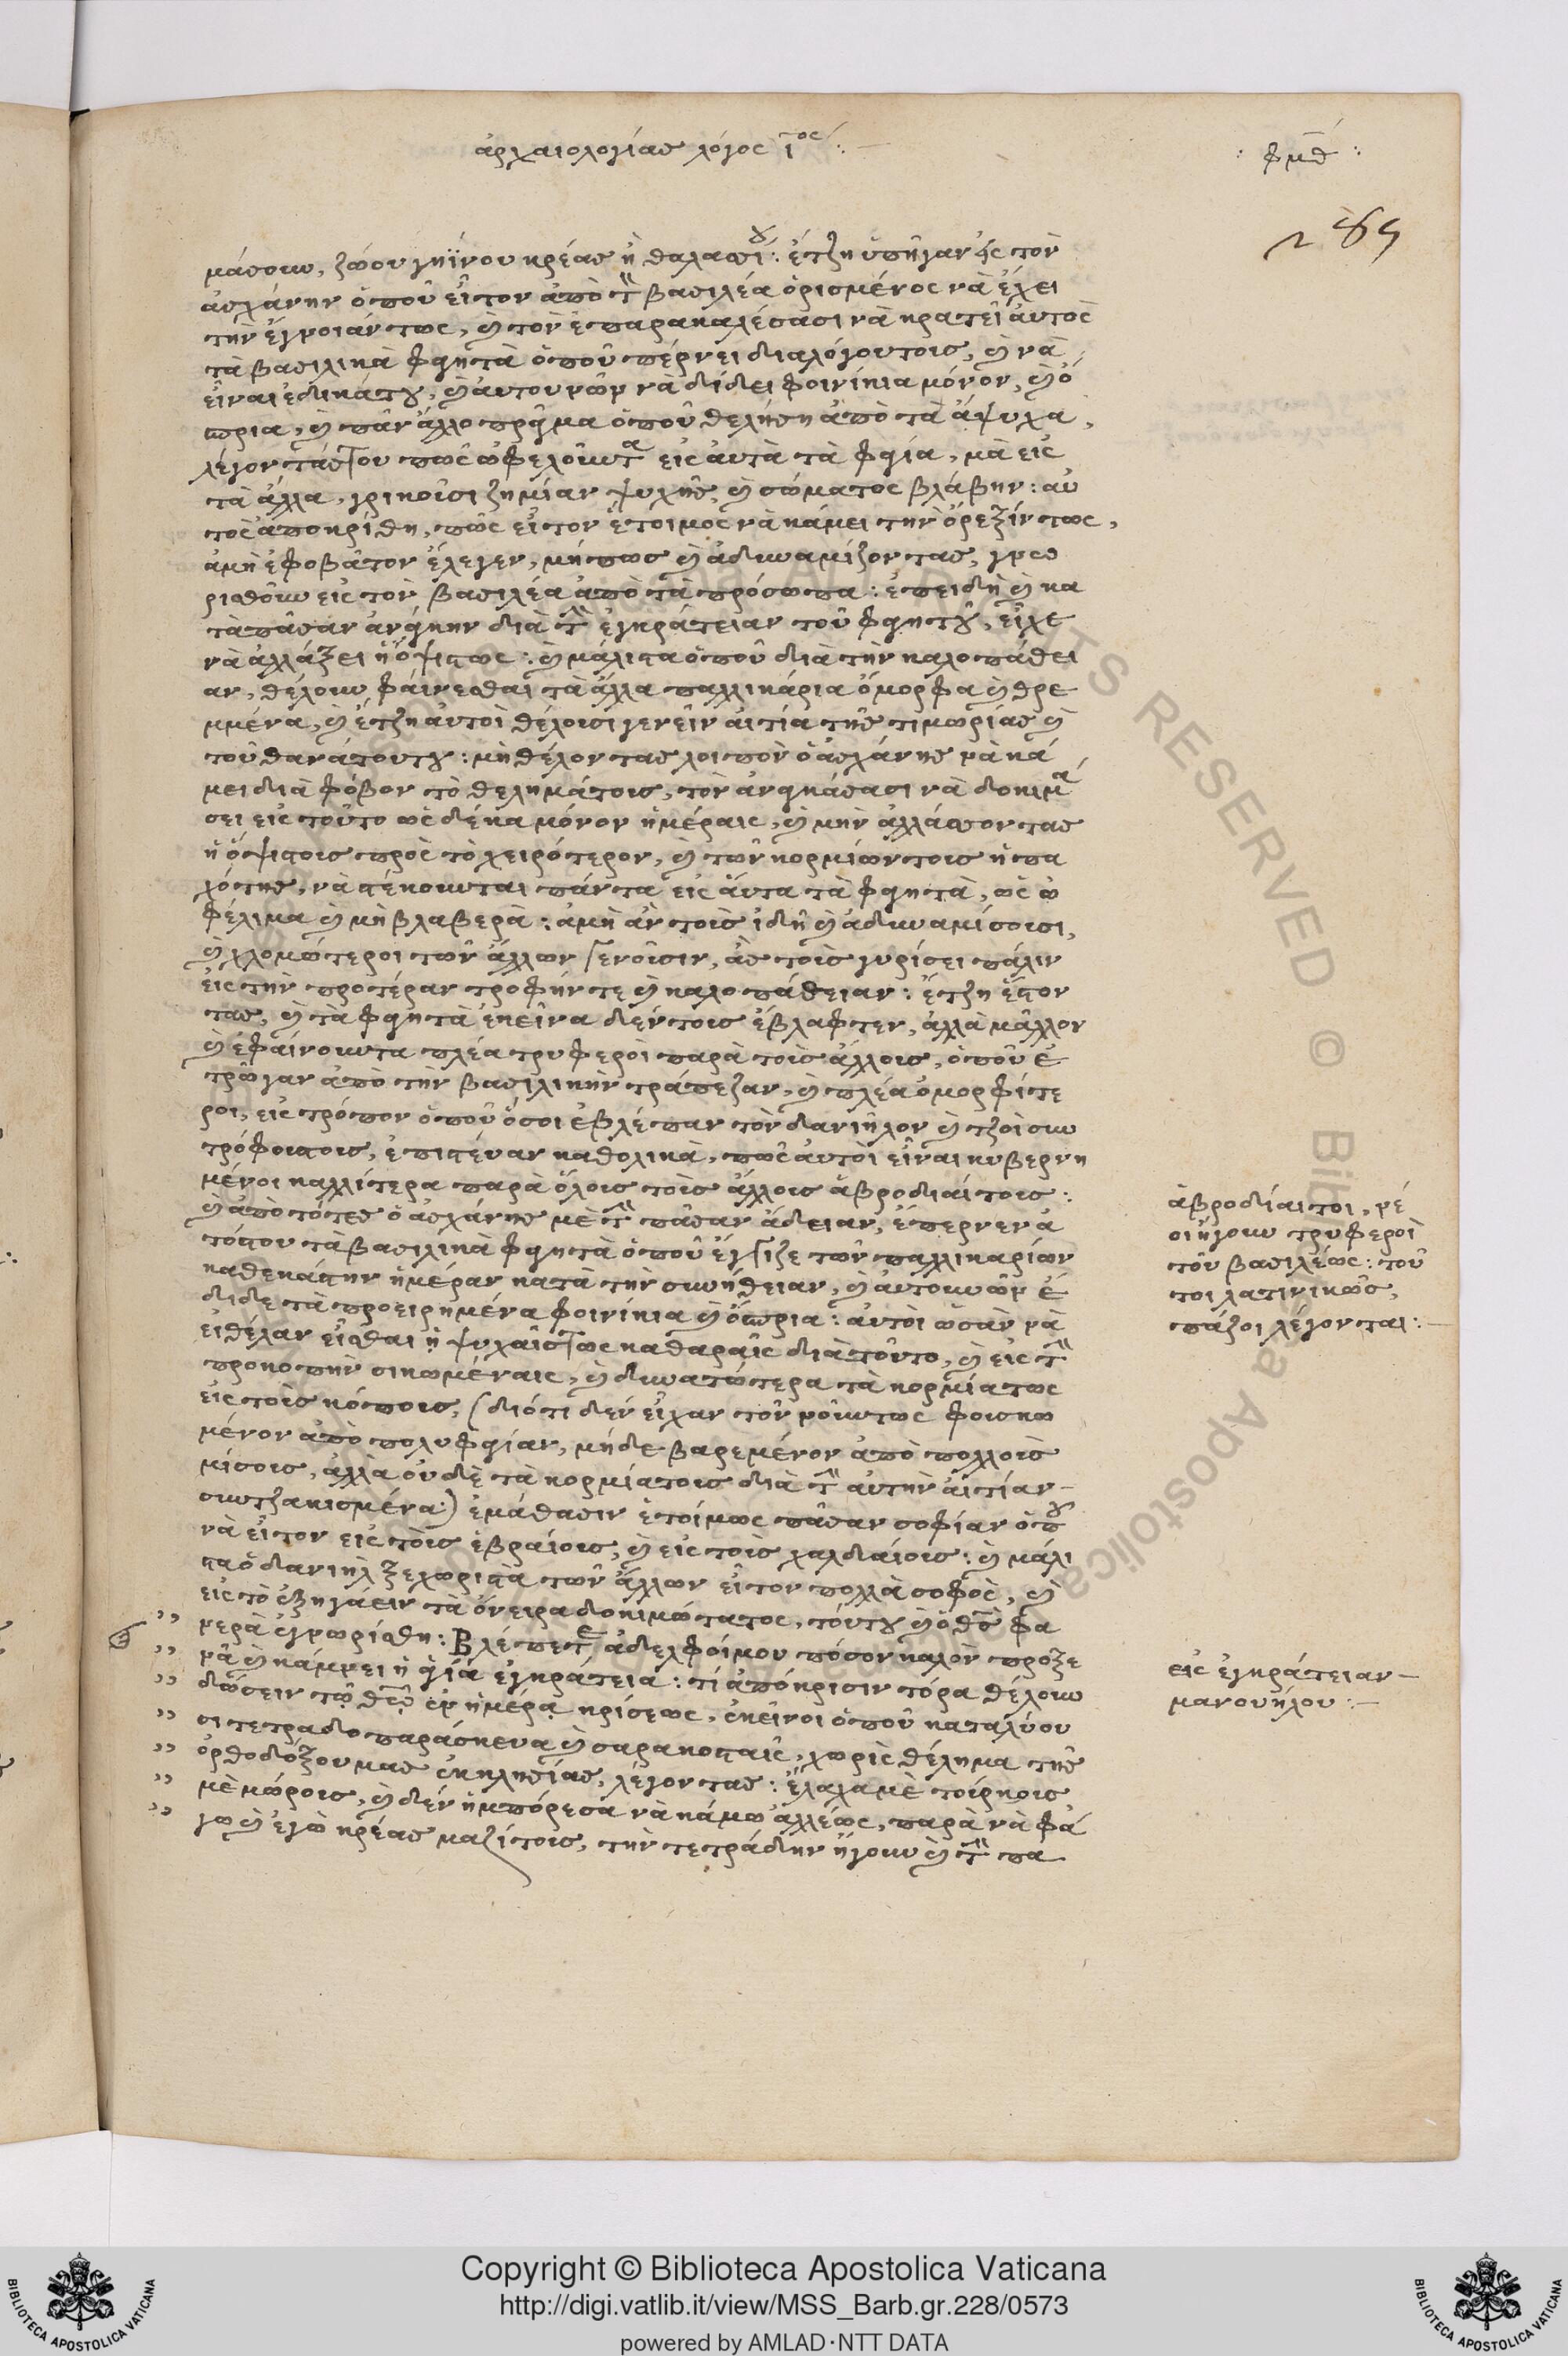 ἀρχαιολογίας λόγος ιος :—
: φμθ :
μάσουν, ζώου γηΐνου κρέας ἢ θαλασίου : ἔτζη ὑπῆγαν εἰς τὸν
ἀσχάνην ὁποῦ εἶτον ἀπὸ τὸν βασιλέα ὁρισμένος νὰ ἔχει
τὴν ἔγνοιάν τως, καὶ τὸν ἐπαρακαλέσασι νὰ κρατεῖ ἀυτὸς
τὰ βασιλικὰ φαγητὰ ὁποῦ πέρνει διαλόγουτοις, καὶ νὰ
εἶναι ἐδικάτου, καὶ ἀυτουνῶν νὰ δίδει φοινίκια μόνον, καὶ ὀ
πρια, καὶ πᾶν ἄλλο πρᾶγμα ὁποῦ θελήση ἀπὸ τὰ ἄψυχα,
λέγοντάς του πῶς ὠφελοῦνται εἰς ἀυτὰ τὰ φαγία, μὰ εἰς
τὰ ἄλλα, γρικοῦσι ζημίαν ψυχῆς, καὶ σώματος βλάβην : αὐ
τὸς ἀποκρίθη, πῶς εἶτον ἕτοιμος νὰ κάμει τὴν ὄρεξίν τως,
ἀμὴ ἐφοβᾶτον ἔλεγεν, μήπως καὶ ἀδυναμίζοντας, γνω
ρισθοῦν εἰς τὸν βασιλέα ἀπὸ τὰ πρόσωπα : ἐπειδὴ καὶ κα
τὰ πᾶσαν ἀνάγκην διὰ τὴν ἐγκράτειαν τοῦ φαγητοῦ, εἶχε
νὰ ἀλλάξει ἡ ὄψις τως : καὶ μάλιστα ὁποῦ διὰ τὴν καλοπάθει
αν, θέλουν φαίνεσθαι τὰ ἄλλα παλλικάρια ὄμορφα καὶ θρε
μμένα, καὶ ἔτζη ἀυτοὶ θέλουσι γενεῖν αἰτία τῆς τιμωρίας καὶ
τοῦ θανάτουτου : μὴ θέλοντας λοιπὸν ὁ ἀσχάνης νὰ κά
μει διὰ φόβον τὸ θελημάτους, τὸν ἀναγκάσασι νὰ δοκιμά
σει εἰς τοῦτο ὡς δέκα μόνον ἡμέραις, καὶ μὴν ἀλλάσσοντας
ἡ ὄψιστους πρὸς τὸ χειρότερον, καὶ τῶν κορμιῶντους ἡ πα
χότης, νὰ στέκουνται πάντα εἰς ἄυτα τὰ φαγητὰ, ὡς ὠ
φέλιμα καὶ μὴ βλαβερὰ : ἀμὴ ἂν τοὺς ἰδῆ καὶ ἀδυναμίσουσι,
καὶ χλομώτεροι τῶν ἄλλων γενοῦσιν, ἂς τοὺς γυρίσει πάλιν
εἰς τὴν προτέραν τροφήντε καὶ καλοπάθειαν : ἔτζη ἔστον
τας, καὶ τὰ φαγητὰ ἐκεῖνα δὲν τοὺς ἔβλαφτεν, ἀλλὰ μᾶλλον
καὶ ἐφαίνουντα πλέα τρυφεροὶ παρὰ τοὺς ἄλλους, ὁποῦ ἐ
τρῶγαν ἀπὸ τὴν βασιλικὴν τράπεζαν, καὶ πλέα ὀμορφίτε
ροι, εἰς τρόπον ὁποῦ ὅσοι ἐβλέπαν τὸν δανιῆλον καὶ τζοὶ συν
τρόφουστους, ἐπιστέυαν καθολικὰ, πῶς ἀυτοὶ εἶναι κυβερνη
μένοι καλλίτερα παρὰ ὅλους τοὺς ἄλλους ἀβροδιαίτους :
καὶ ἀπὸ τότες ὁ ἀσχάνης μὲ τὴν πᾶσαν ἄδειαν, ἔπερνεν ἀ
τόστου τὰ βασιλικὰ φαγητὰ ὁποῦ ἔγγιζε τῶν παλλικαρίων
καθεκάστην ἡμέραν κατὰ τὴν συνήθειαν, καὶ ἀυτουνῶν ἔ
διδε τὰ προειρημένα φοινίκια καὶ ὄσπρια : ἀυτοὶ ὡσὰν νὰ
ειθέλαν εἶσθαι ἡ ψυχαῖς τως καθαραῖς διὰ τοῦτο, καὶ εἰς τὴν
προκοπὴν σικωμέναις, καὶ δυνατώτερα τὰ κορμία τως
εἰς τοὺς κόπους, (διότι δὲν εἶχαν τὸν νοῦν τως φουσκω
μένον ἀπὸ πολυφαγίαν, μήδε βαρεμένον ἀπὸ πολλοὺς
μίσους, ἀλλὰ οὐδὲ τὰ κορμίατους διὰ τὴν ἀυτὴν ἀιτίαν –
συντζακισμένα) ἐμάθασιν ἑτοίμως πᾶσαν σοφίαν ὁποῦ
νὰ εἶτον εἰς τοὺς ἑβραίους, καὶ εἰς τοὺς χαλδαίους : καὶ μάλι
στα ὁ δανιὴλ ξεχωριστὰ τῶν ἄλλων εἶτον πολλὰ σοφὸς, καὶ
εἰς τὸ ἐξηγάειν τὰ ὄνειρα δοκιμώτατος, τούτου καὶ ὁ θεὸς φα
νερὰ ἐγνωρίσθη : Βλέπετε ἀδελφοίμου πόσον καλὸν πρόξε
νᾶ καὶ κάμνει ἡ ἁγία ἐγκράτεια : τί ἀπόκρισιν τόρα θέλουν
δώσειν τῷ θεῷ ἐν ἡμέρᾳ κρίσεως, ἐκεῖνοι ὁποῦ καταλύου
σι τετραδοπαράσκευα καὶ σαρακοσταῖς, χωρὶς θέλημα τῆς
ὀρθοδόξουμας ἐκκλησίας, λέγοντας : ἔλαχαμε τούρκους
μὲ μώρους, καὶ δὲν ἠμπόρεσα νὰ κάμω ἀλλέως, παρὰ νὰ φά
γω καὶ ἐγὼ κρέας μαζίτους, τὴν τετράδην ἤγουν καὶ τὴν πα
ἀβροδίαιτοι, νέ
οι ἤγουν τρυφεροὶ
τοῦ βασιλέως : τοῦ
τοι λατινικῶς,
πάζοι λέγονται :—
εἰς ἐγκράτειαν –
μανουήλου :—
Copyright © Biblioteca Apostolica Vaticana
http://digi.vatlib.it/view/MSS_Barb.gr.228/0573
powered by AMLAD·NTT DATA
BIBLIOTECA APOSTOLICA VATICANA
BIBLIOTECA APOSTOLICA VATICANA